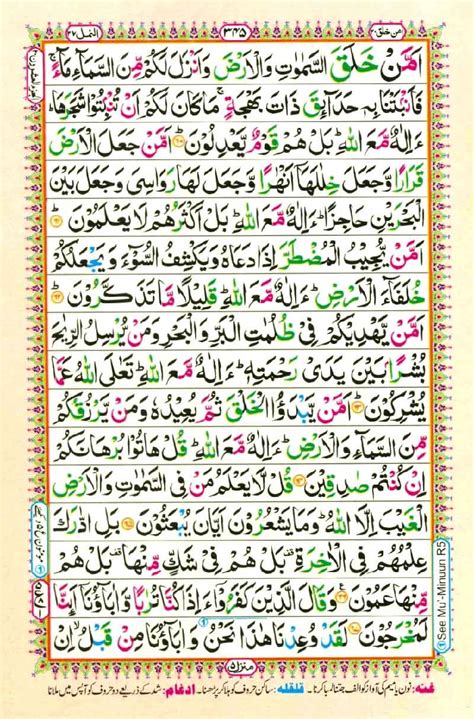 امن خلق ٢٠
٣٤٥
النمل ٢٧
اَمَّنْ خَلَقَ السَّمٰوٰتِ وَالْاَرْضَ وَاَنْزَلَ لَكُمْ مِّنَ السَّمَآءِ مَآءً ۚ
فَاَنْۢبَتْنَا بِهٖ حَدَآئِقَ ذَاتَ بَهْجَةٍ ۚ مَا كَانَ لَكُمْ اَنْ تُنْۢبِتُوْا شَجَرَهَا ؕ
ءَاِلٰهٌ مَّعَ اللّٰهِ ؕ بَلْ هُمْ قَوْمٌ يَّعْدِلُوْنَ ؕ﴿۶۰﴾ اَمَّنْ جَعَلَ الْاَرْضَ
قَرَارًا وَّجَعَلَ خِلٰلَهَاۤ اَنْهٰرًا وَّجَعَلَ لَهَا رَوَاسِيَ وَجَعَلَ بَيْنَ
الْبَحْرَيْنِ حَاجِزًا ؕ ءَاِلٰهٌ مَّعَ اللّٰهِ ؕ بَلْ اَكْثَرُهُمْ لَا يَعْلَمُوْنَ ؕ﴿۶۱﴾
اَمَّنْ يُّجِيْبُ الْمُضْطَرَّ اِذَا دَعَاهُ وَيَكْشِفُ السُّوْٓءَ وَيَجْعَلُكُمْ
خُلَفَآءَ الْاَرْضِ ؕ ءَاِلٰهٌ مَّعَ اللّٰهِ ؕ قَلِيْلًا مَّا تَذَكَّرُوْنَ ؕ﴿۶۲﴾
اَمَّنْ يَّهْدِيْكُمْ فِيْ ظُلُمٰتِ الْبَرِّ وَالْبَحْرِ وَمَنْ يُّرْسِلُ الرِّيٰحَ
بُشْرًاۢ بَيْنَ يَدَيْ رَحْمَتِهٖ ؕ ءَاِلٰهٌ مَّعَ اللّٰهِ ؕ تَعٰلَى اللّٰهُ عَمَّا
يُشْرِكُوْنَ ؕ﴿۶۳﴾ اَمَّنْ يَّبْدَؤُا الْخَلْقَ ثُمَّ يُعِيْدُهٗ وَمَنْ يَّرْزُقُكُمْ
مِّنَ السَّمَآءِ وَالْاَرْضِ ؕ ءَاِلٰهٌ مَّعَ اللّٰهِ ؕ قُلْ هَاتُوْا بُرْهَانَكُمْ
اِنْ كُنْتُمْ صٰدِقِيْنَ ﴿۶۴﴾ قُلْ لَّا يَعْلَمُ مَنْ فِي السَّمٰوٰتِ وَالْاَرْضِ
الْغَيْبَ اِلَّا اللّٰهُ ؕ وَمَا يَشْعُرُوْنَ اَيَّانَ يُبْعَثُوْنَ ﴿۶۵﴾ بَلِ ادّٰرَكَ
عِلْمُهُمْ فِي الْاٰخِرَةِ ۟ بَلْ هُمْ فِيْ شَكٍّ مِّنْهَا ۟ بَلْ هُمْ
مِّنْهَا عَمُوْنَ ﴿۶۶﴾ وَقَالَ الَّذِيْنَ كَفَرُوْۤا ءَاِذَا كُنَّا تُرٰبًا وَّاٰبَآؤُنَاۤ اَئِنَّا
لَمُخْرَجُوْنَ ﴿۶۷﴾ لَقَدْ وُعِدْنَا هٰذَا نَحْنُ وَاٰبَآؤُنَا مِنْ قَبْلُ ۙ اِنْ
منزل ۵
① See Mu'-Minuun R5
غنّہ: نون یا میم کی آواز کو الف جتنا لمبا کرنا۔ قلقلہ: ساکن حروف کو ہلا کر پڑھنا۔ ادغام: شد کے ذریعے دو حروف کو آپس میں ملانا